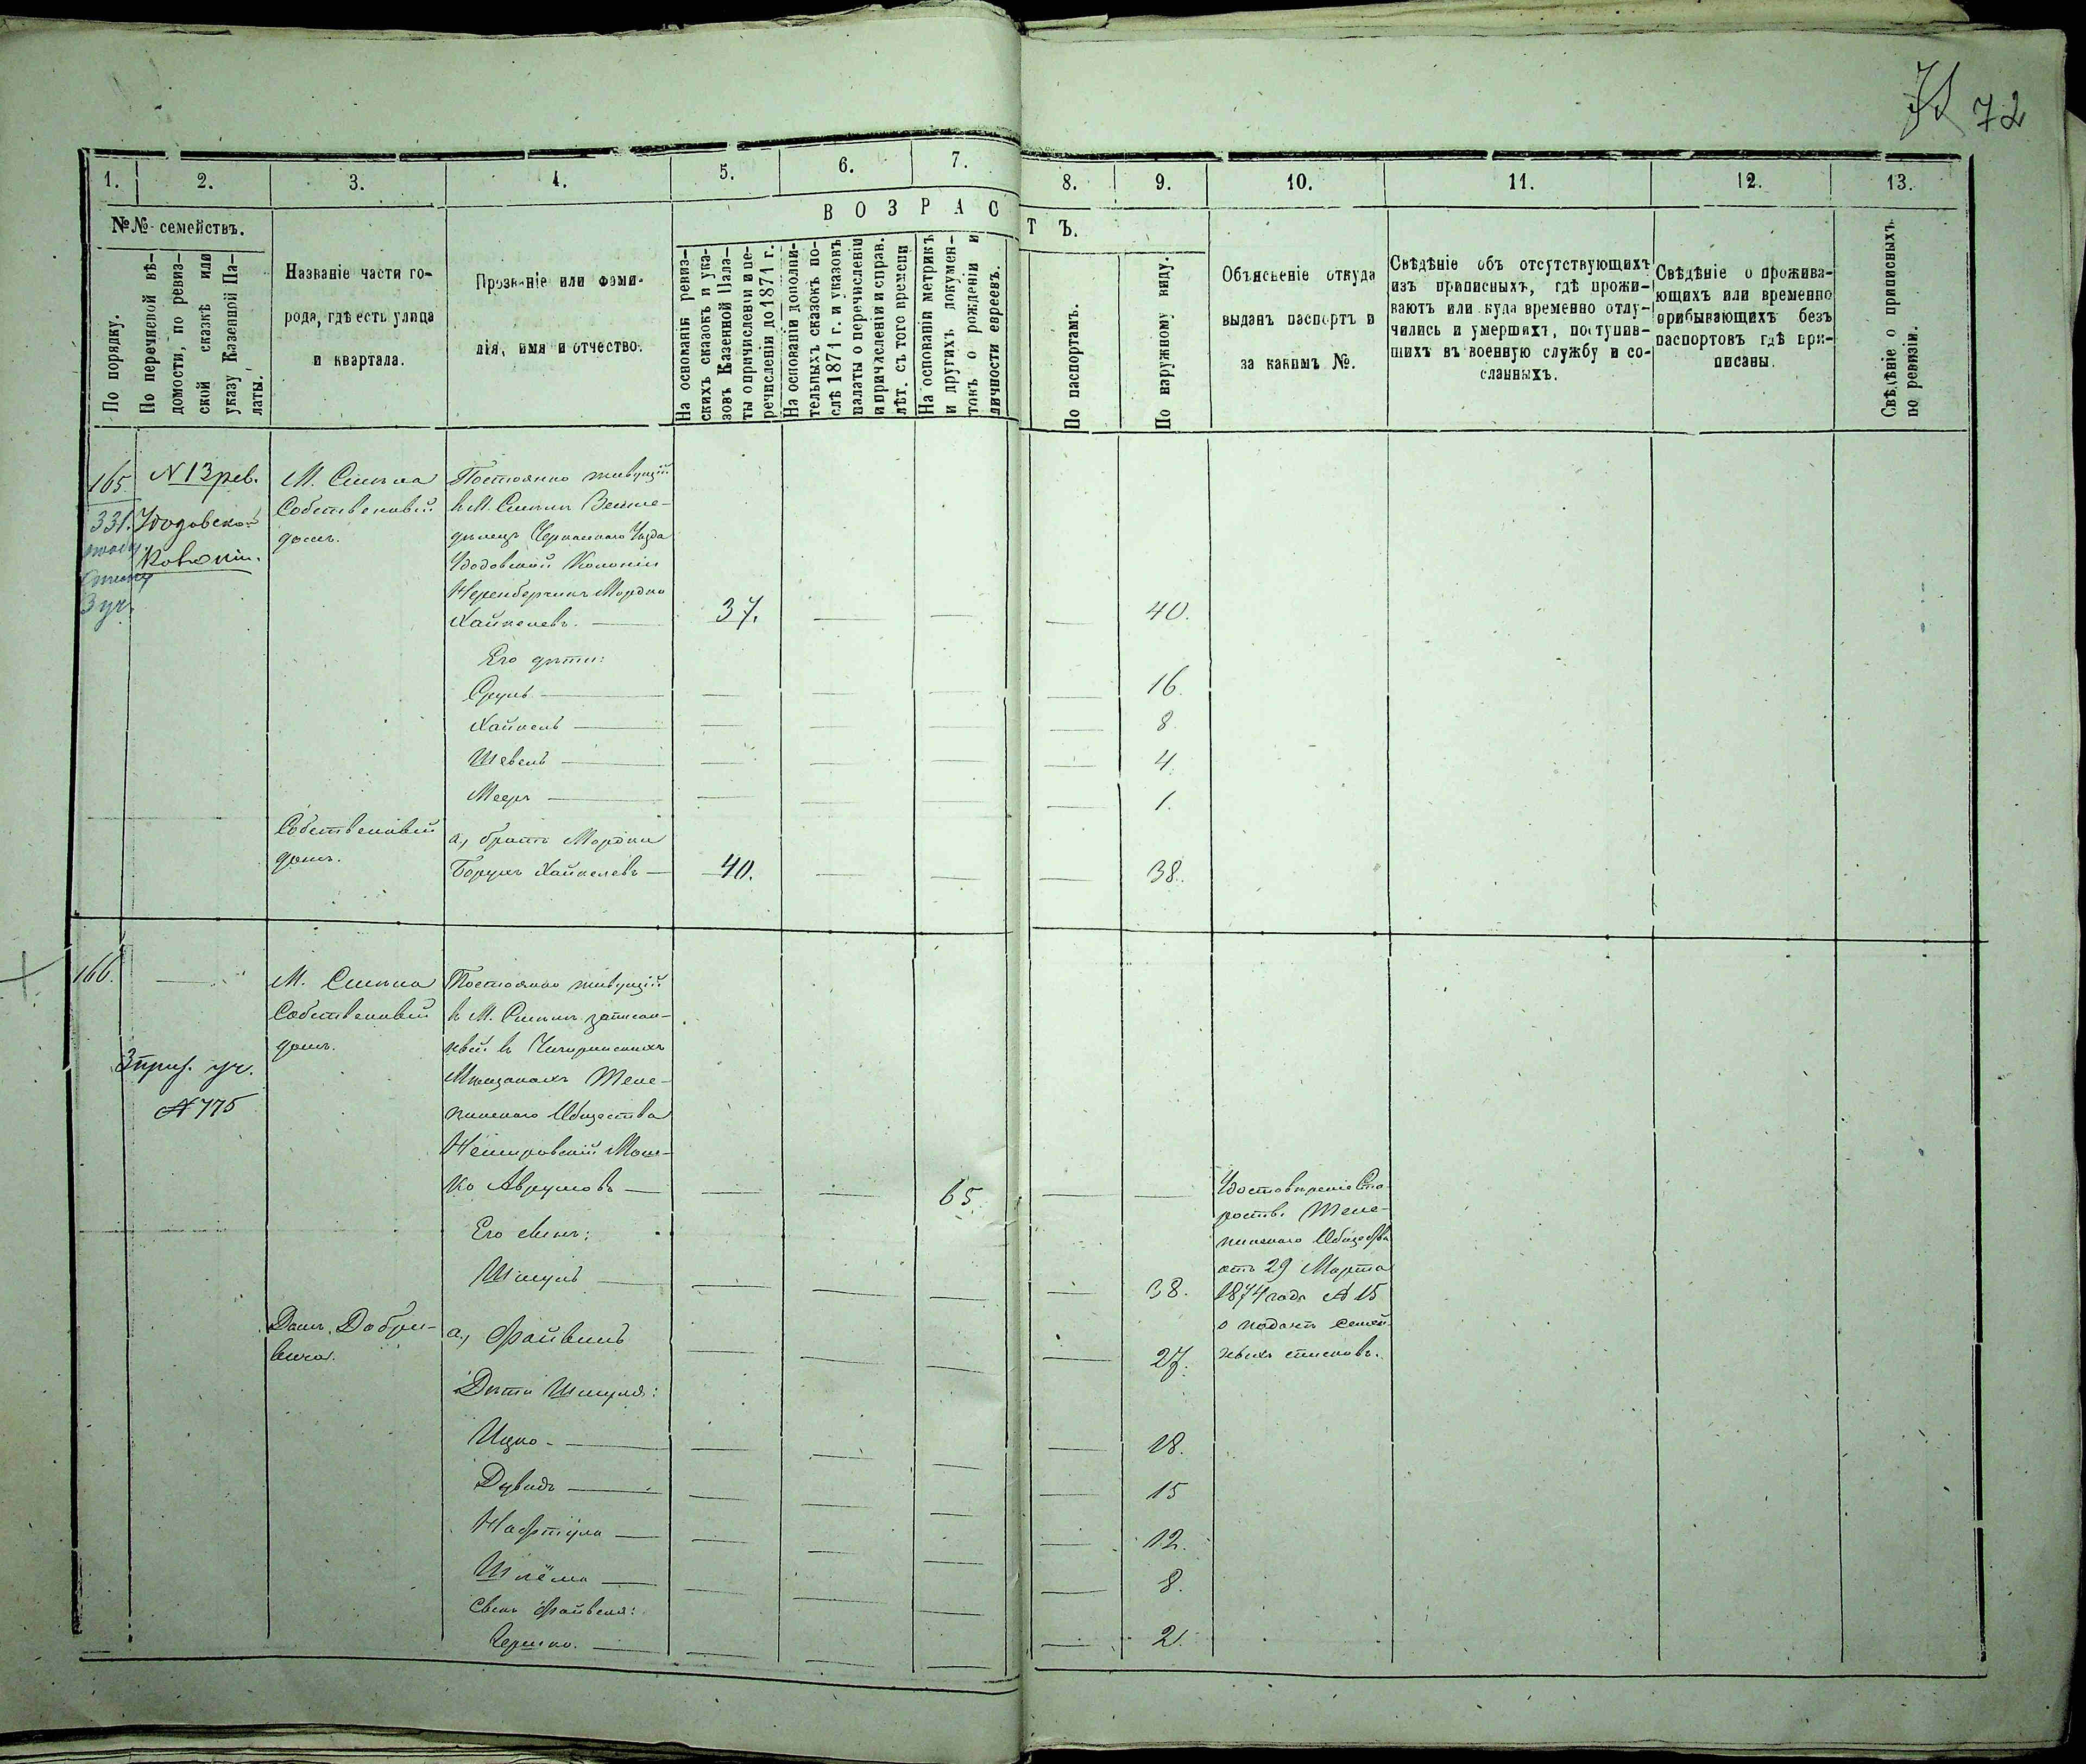 72
1. 2. 3. 4. 5. 6. 7. 8. 9. 10. 11. 12. 13.
№№ семействъ.
По порядку.
По перечневой вѣ-
домости, по ревиз-
ской сказкѣ или
указу Казенной Па-
латы.
Названіе части го-
рода, гдѣ есть улица
и квартала.
Прозваніе или фами-
лія, имя и отчество.
ВОЗРАСТЪ.
На основаніи ревиз-
скихъ сказокъ и ука-
зовъ Казенной Пала-
ты о причисленіи и пе-
речисленіи до 1871 г.
На основаніи дополни-
тельныхъ сказокъ по-
слѣ 1871 г. и указовъ
палаты о перечисленіи
и причисленіи и справ.
лѣт. съ того времени
На основаніи метрикъ
и другихъ докумен-
товъ о рожденіи и
личности евреевъ.
По паспортамъ.
По наружному виду.
Объясненіе откуда
выданъ паспортъ и
за какимъ №.
Свѣдѣніе объ отсутствующихъ
изъ приписныхъ, гдѣ прожи-
ваютъ или куда временно отлу-
чились и умершихъ, поступив-
шихъ въ военную службу и со-
сланныхъ.
Свѣдѣніе о прожива-
ющихъ или временно
прибывающихъ безъ
паспортовъ гдѣ при-
писаны.
Свѣдѣніе о приписныхъ
по ревизіи.
165.
331.
3 уч.
N 13 рев.
Ударовской
Колоніи.
М. Смѣла
Собственный
домъ.
Постоянно живущій
в М. Смѣлѣ Земле-
дѣлецъ Черкаскаго Уѣзда
Колоніи
Неренбергикъ Мордко
Хайкелевъ. 37. 40.
Его дѣти:
Срулъ 16.
Хайкель 8
Шевель 4.
Мееръ 1.
Собственный
домъ.
а, братъ Мордки
Борухъ Хайкелевъ 40. 38.
166.
3 приз. уч.
№ 775
М. Смѣла
Собственный
домъ.
Постоянно живущій
в М. Смѣлѣ записан-
ный в Чигиринскихъ
Мѣщанахъ Меле-
пинскаго Общества
Немировскій Мош-
ко Аврумовъ 65.
Его сынъ:
Шмуль 38.
Домъ Добри-
вича.
а, Файвишъ 27.
Дѣти Шмуля:
Ицко 18.
Дувидъ 15
Нафтула 12.
Шлёма 8.
Сынъ Файвеля:
Гершко. 2.
Удостовѣреніе Ста-
роств. Меле-
пинскаго Общества
отъ 29 Марта
1874 года № 15
о подачѣ семей-
ныхъ списковъ.